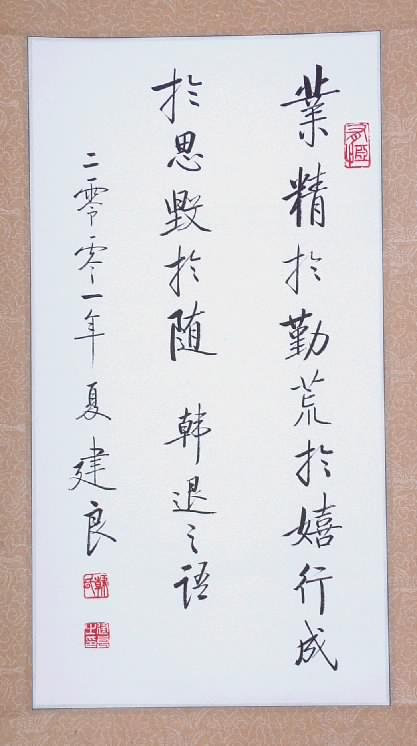 業精於勤荒於嬉行成
於思毀於随 韩退之语
二零零一年夏建良